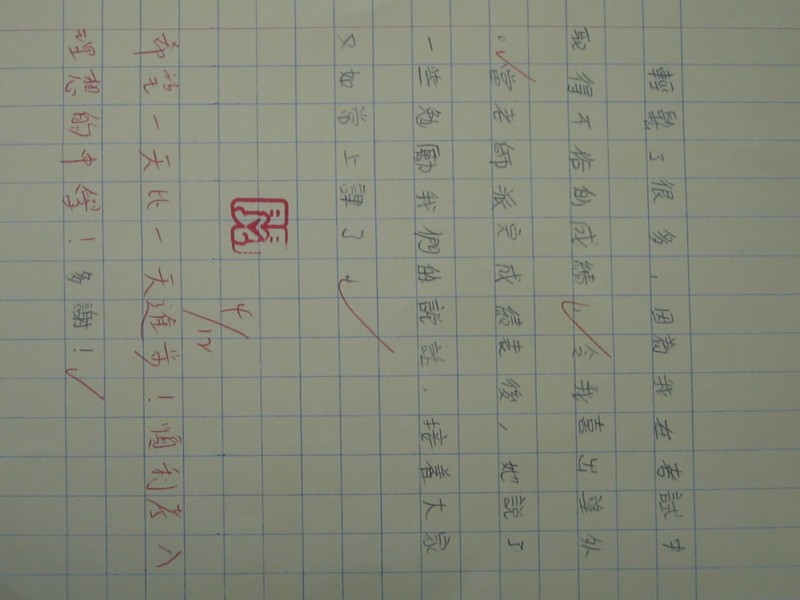 輕鬆了很多，因為我在考試中
取得不俗的成績，令我喜出望外
。當老師派完成績表後，她說了
一些勉勵我們的說話，接着大家
又如常上課了。
4/12
希望一天比一天進步！順利考入
理想的中學！多謝！